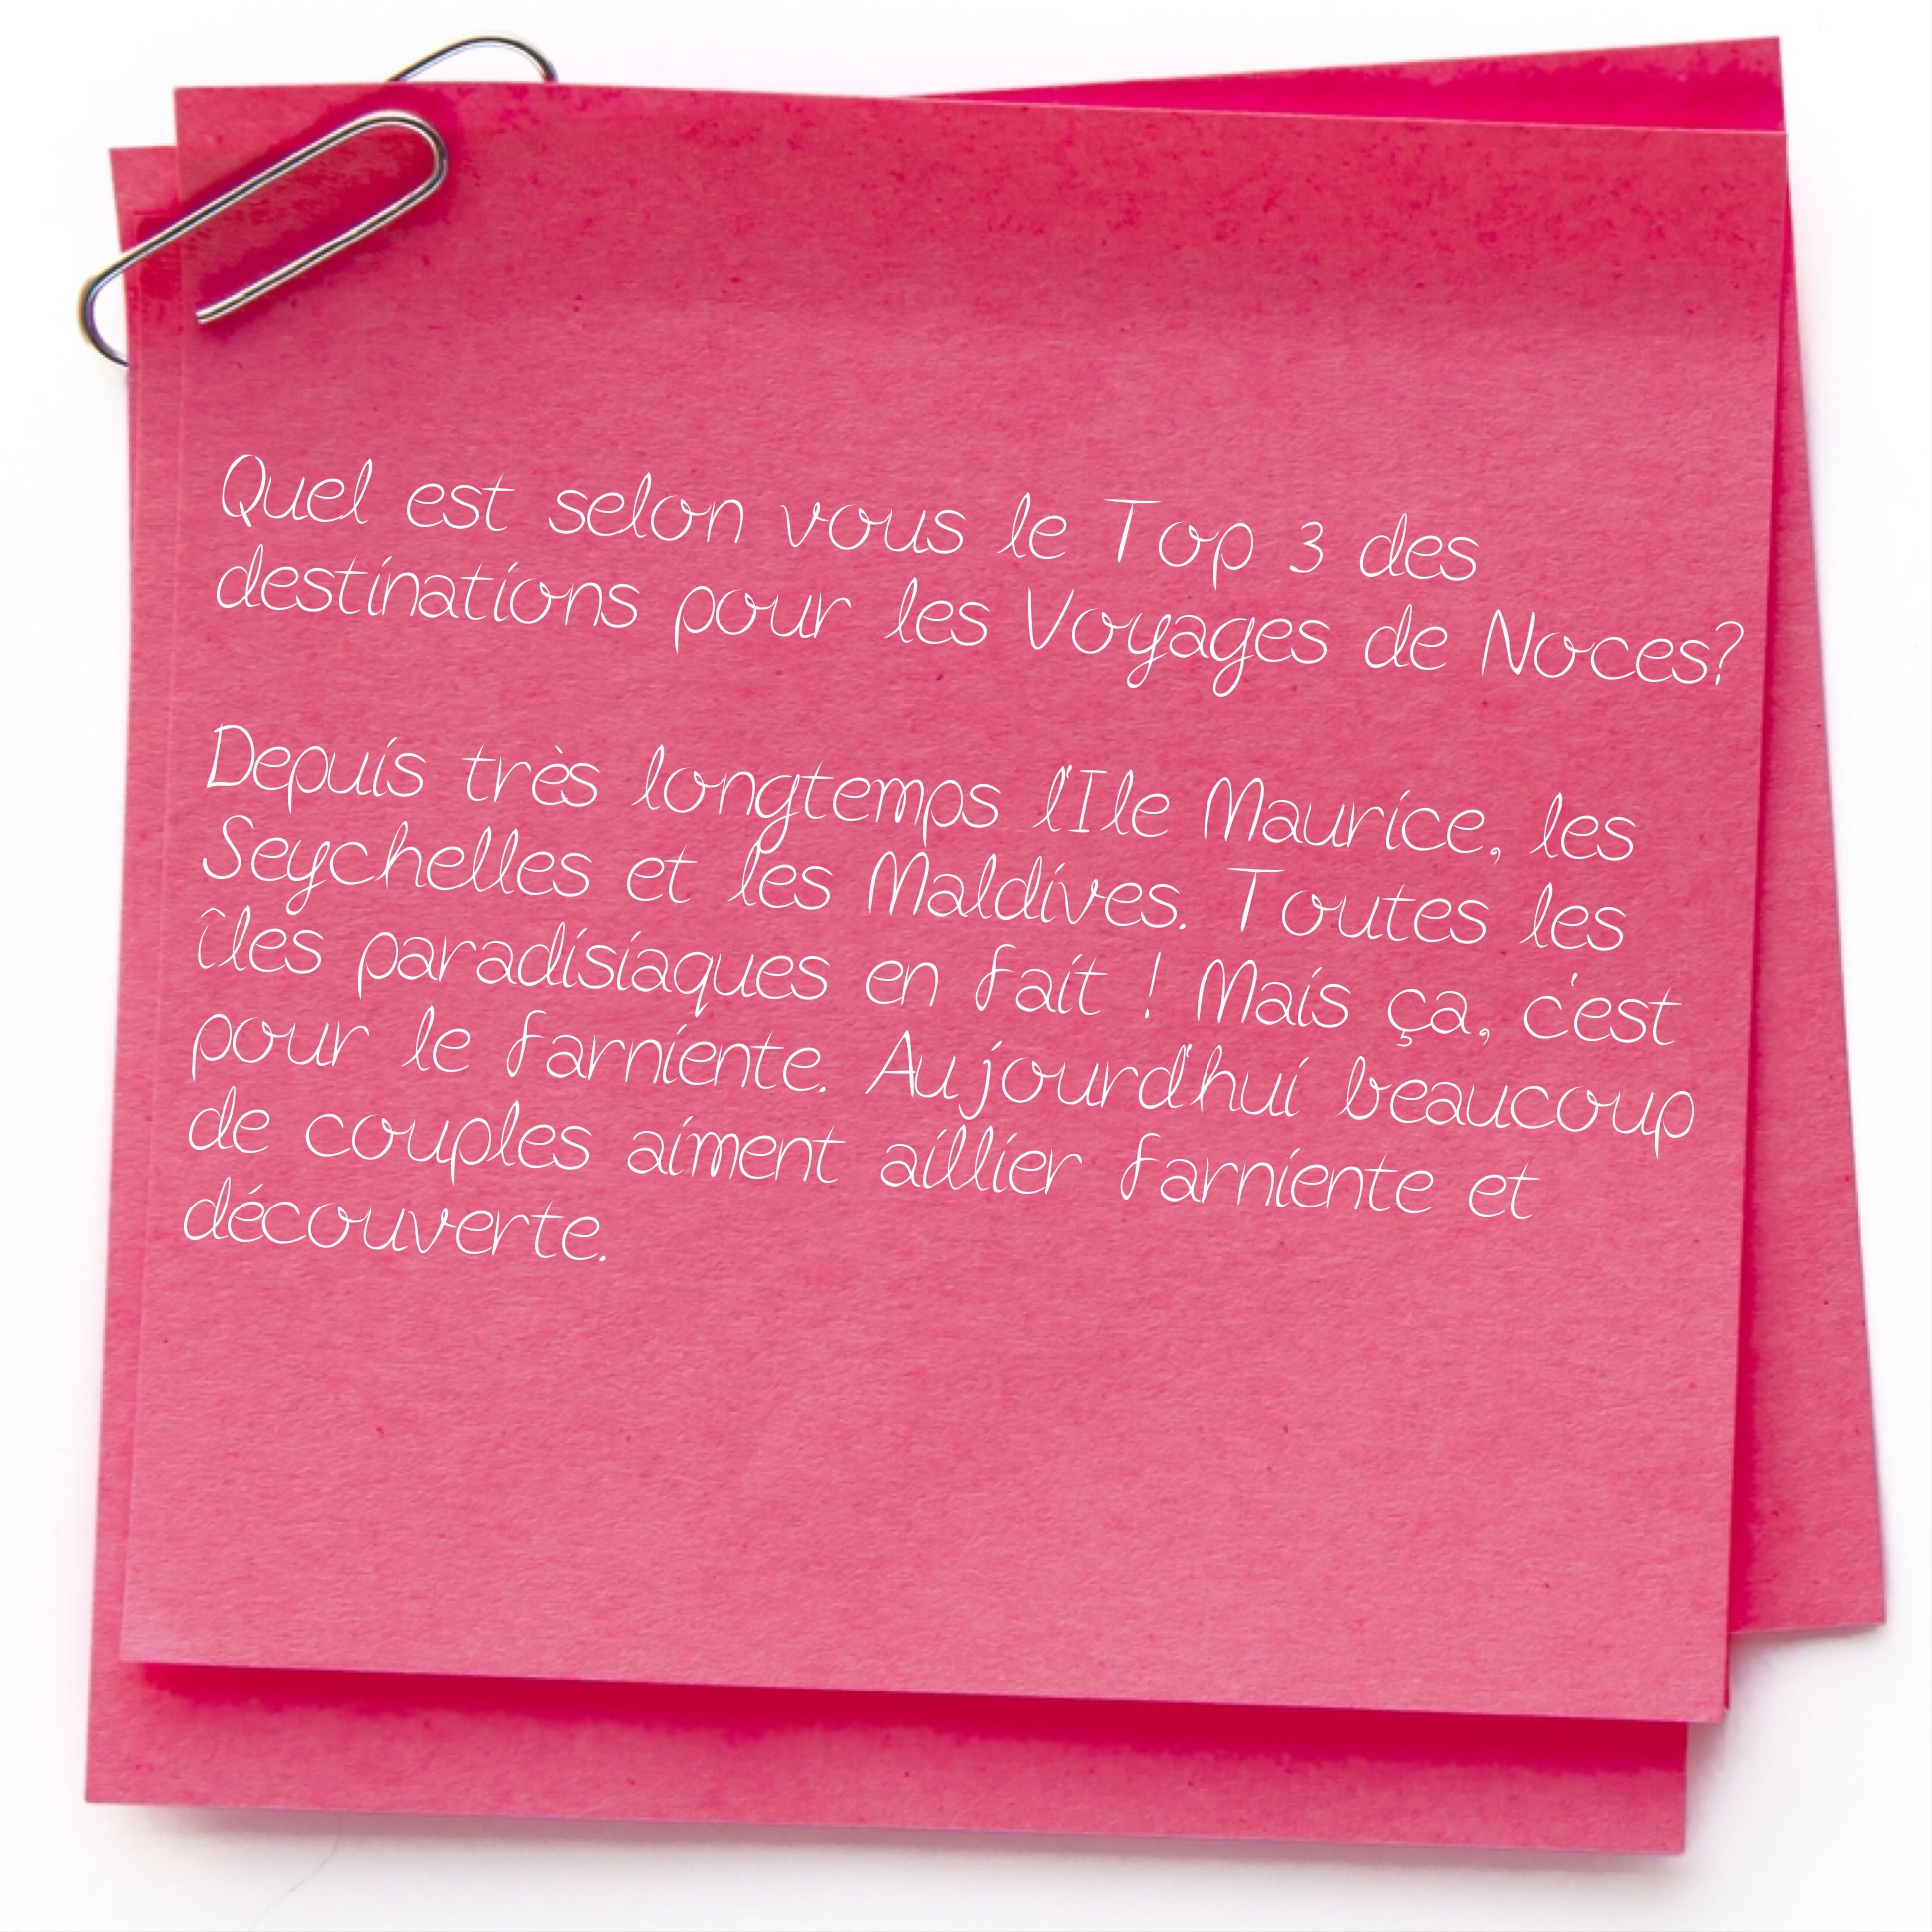 Quel est selon vous le Top 3 des
destinations pour les Voyages de Noces?
Depuis très longtemps l'Ile Maurice, les
Seychelles et les Maldives. Toutes les
îles paradisiaques en fait ! Mais ça, c'est
pour le farniente. Aujourd'hui beaucoup
de couples aiment aillier farniente et
découverte.